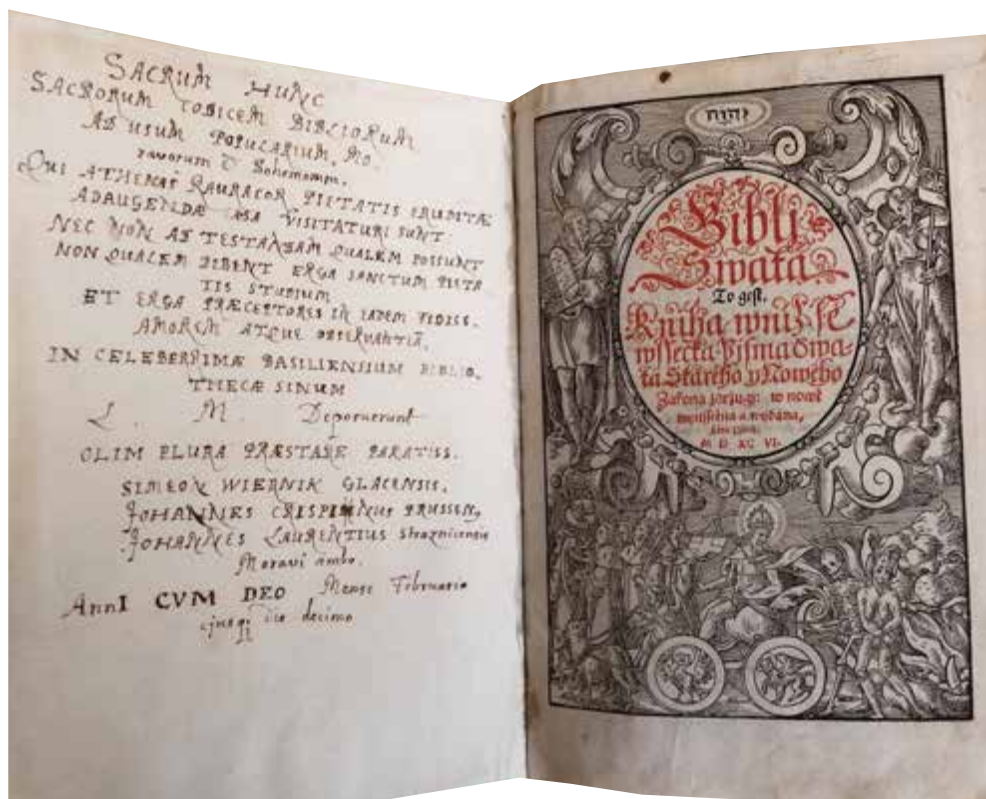 SACRUM HUNC
SACRORUM CODICEM BIBLIORUM
AD USUM POPULARIUM, MO
ravorum & Bohemorum,
QUI ATHENAS RAURACOR PIETATIS ERUNTÆ
AD AUGENDÆ VISITATURI SUNT
NEC NON AD TESTANDAM QUALEM POSSUNT
NON QUALEM DEBENT ERGA SANCTUM PIETA
TIS STUDIUM
ET ERGA PRÆCEPTORES IN EADEM FIDISS.
AMOREM ATQUE OBSERVANTIÃ,
IN CELEBERRIMÆ BASILIENSIUM BIBLIO,
THECÆ SINUM
L. M. Deposuerunt
OLIM PLURA PRÆSTARE PARATISS.
SIMEON WIERNIK GLACENSIS,
JOHANNES CRISPINUS PRUSSEN,
JOHANNES LAURENTIUS Straznicensis
Moravi ambo.
AnnI CVM DEO Mense Februario
ejusq; die decimo
יהוה
Biblj
Swatá
To gest,
Knjha wnjž se
wssecka Pjsma Swa-
tá Starého y Nowého
Zákona zdržugj: w nowě
wytisstěná a wydaná,
M D XC VI.